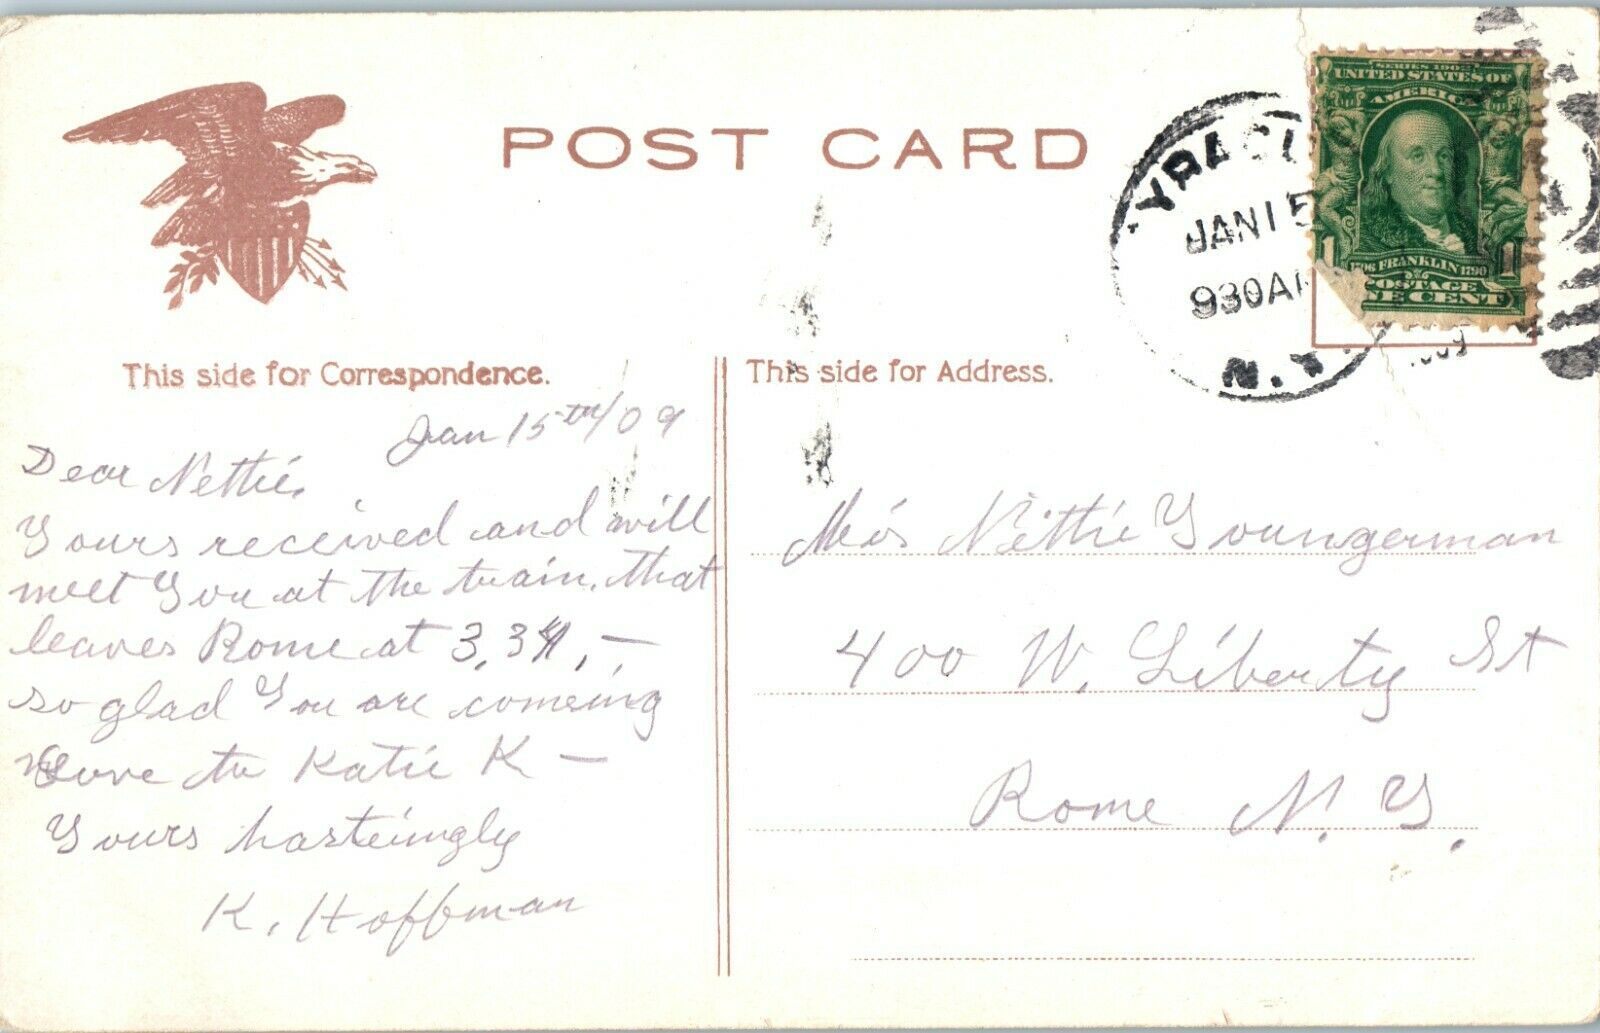 POST CARD
YRACU
JAN 15
930 A
N.Y.
1909
SERIES 1902
UNITED STATES OF
AMERICA
1 1
1706 FRANKLIN 1790
POSTAGE
NE CENT
This side for Correspondence.
Jan 15th/09
Dear Nettie.
Yours received and will
meet You at the train. that
leaves Rome at 3,34, —
so glad You are comeing
Love to Katie K —
Yours hasteingly
K. Hoffman
This side for Address.
Miss Nettie Youngerman
400 W. Liberty St
Rome N. Y.